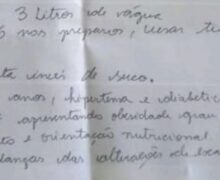 3 litros de água
nos preparos, usar
de suco.
anos, hipertensa e diabétic
apresentando obesidade grau
e orientação nutricional
das alterações de exa